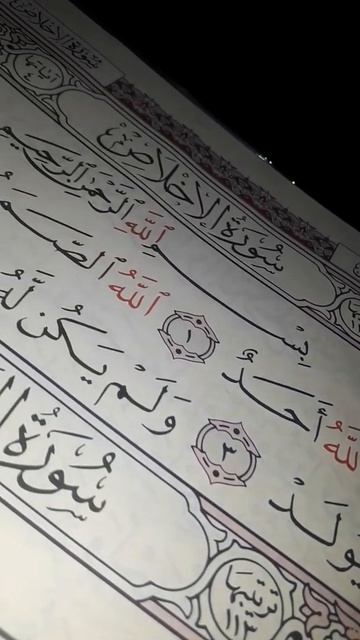 سُورَةُ الإِخْلَاصِ
آيَاتُهَا ٤
سُورَةُ الإِخْلَاصِ
بِسْمِ اللَّهِ الرَّحْمَٰنِ الرَّحِيمِ
اللَّهُ أَحَدٌ ١ اللَّهُ الصَّمَدُ
يُولَدْ ٣ وَلَمْ يَكُن لَّهُ
تَرْتِيبُهَا ١١٣ سُورَةُ